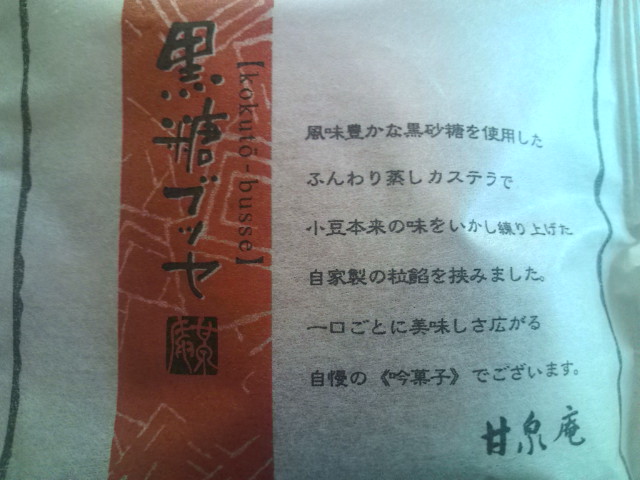 黒糖ブッセ
【kokutō-busse】
風味豊かな黒砂糖を使用した
ふんわり蒸しカステラで
小豆本来の味をいかし練り上げた
自家製の粒餡を挟みました。
一口ごとに美味しさ広がる
自慢の《吟菓子》でございます。
甘泉庵